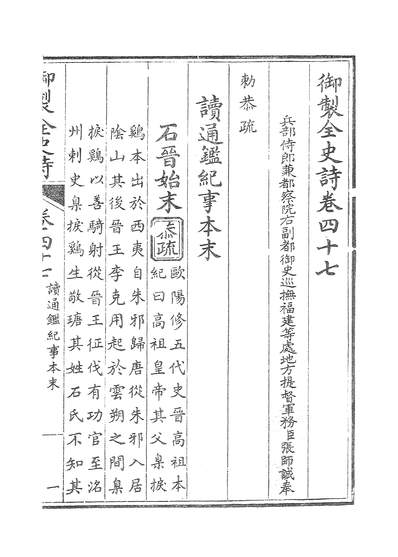 御製全史詩卷四十七
兵部侍郎兼都察院右副都御史巡撫福建等處地方提督軍務臣張師誠奉
勅恭疏
讀通鑑紀事本末
石晉始末
恭疏
歐陽修五代史晉高祖本
紀曰高祖皇帝其父臬捩
鷄本出於西夷自朱邪歸唐從朱邪入居
陰山其後晉王李克用起於雲朔之間臬
捩鷄以善騎射從晉王征伐有功官至洺
州刺史臬捩鷄生敬瑭其姓石氏不知其
御製全史詩
卷四十七
讀通鑑紀事本末
一